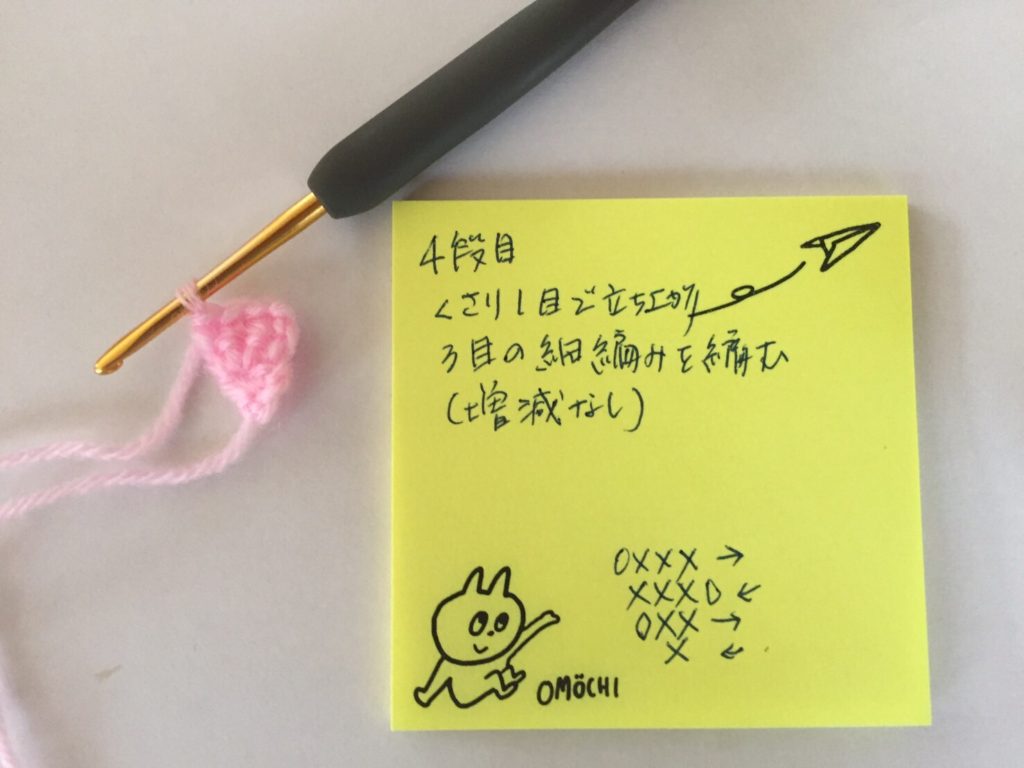 4段目
くさり1目で立ち上がり
3目の細編みを編む
(増減なし)
OXXX→
XXXO←
OXX→
X←
OMÖCHI